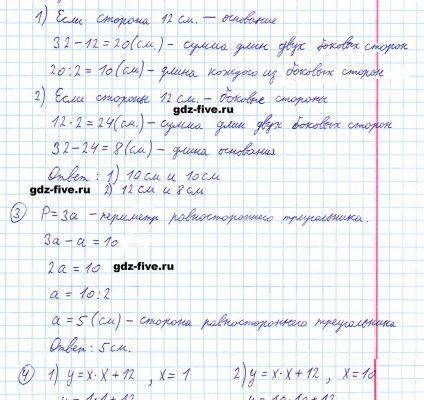 1) Если сторона 12 см. – основание
32-12=20(см) - сумма длин двух боковых сторон
20:2=10(см) - длина каждого из боковых сторон
2) Если стороны 12 см. - боковые стороны
gdz-five.ru
12·2=24(см.) - сумма длин двух боковых сторон
32-24=8(см) - длина основания
Ответ: 1) 10 см и 10 см
gdz-five.ru 2) 12 см и 8 см
3 P=3a - периметр равностороннего треугольника.
3a-a=10
2a=10 gdz-five.ru
a=10:2
a=5(см) - сторона равностороннего треугольника
Ответ: 5 см.
4 1) y=x·x+12, x=1 2) y=x·x+12, x=10